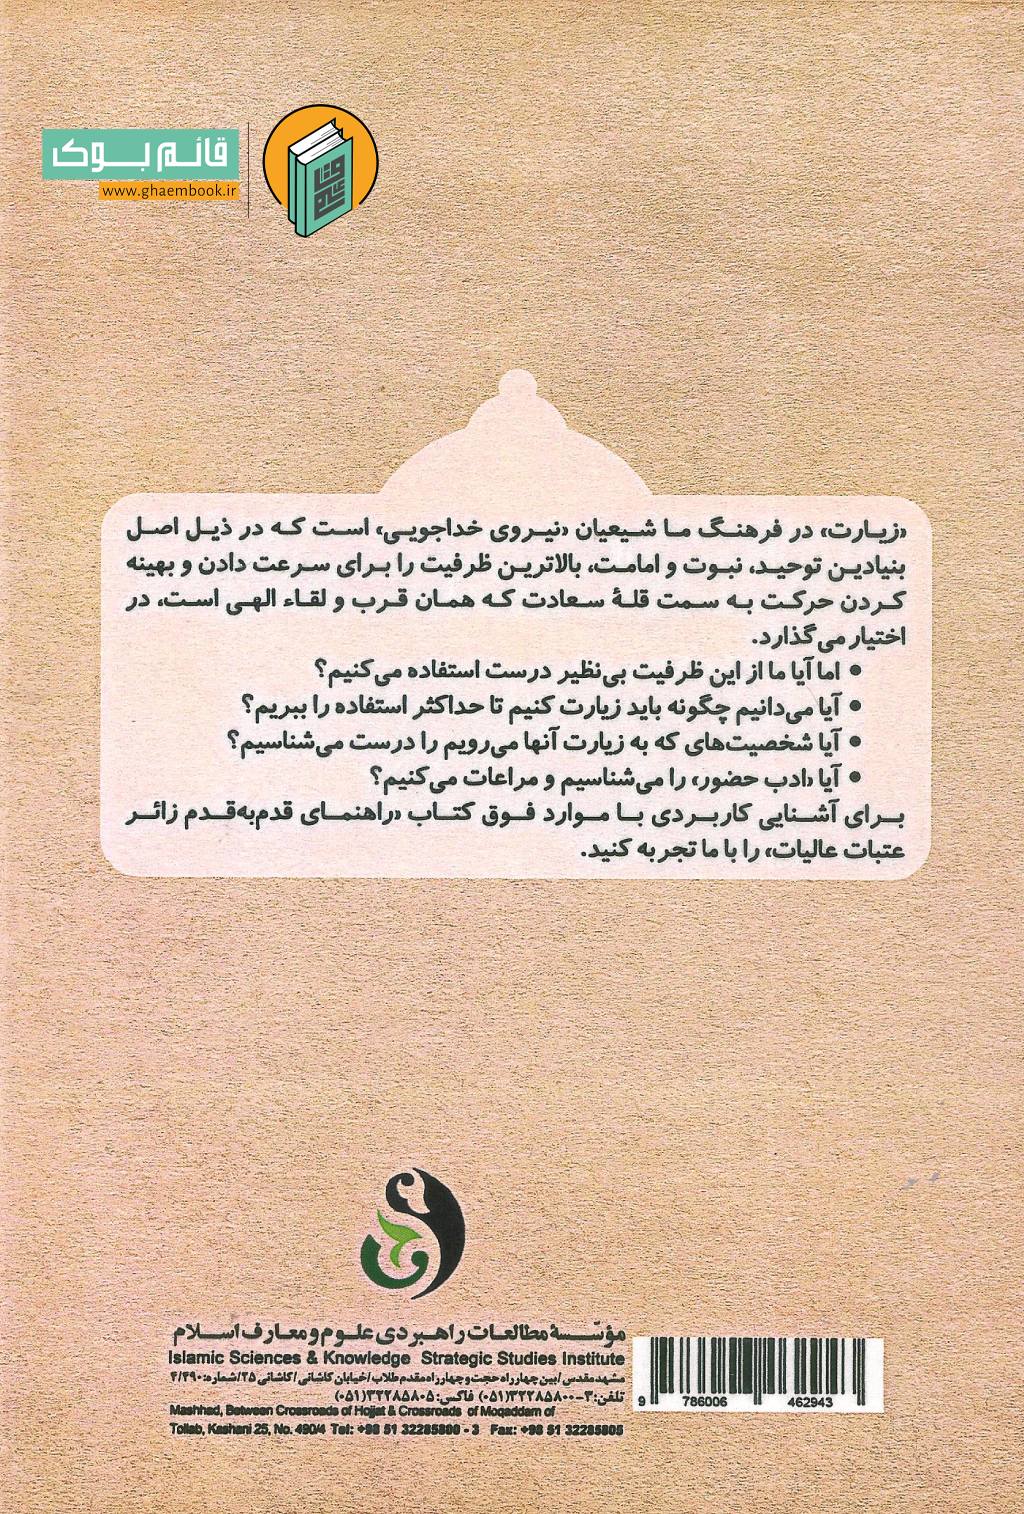 قائم بوک
www.ghaembook.ir
«زیارت» در فرهنگ ما شیعیان «نیروی خداجویی» است که در ذیل اصل
بنیادین توحید، نبوت و امامت، بالاترین ظرفیت را برای سرعت دادن و بهینه
کردن حرکت به سمت قلۀ سعادت که همان قرب و لقاء الهی است، در
اختیار می‌گذارد.
• اما آیا ما از این ظرفیت بی‌نظیر درست استفاده می‌کنیم؟
• آیا می‌دانیم چگونه باید زیارت کنیم تا حداکثر استفاده را ببریم؟
• آیا شخصیت‌های که به زیارت آنها می‌رویم را درست می‌شناسیم؟
• آیا «ادب حضور» را می‌شناسیم و مراعات می‌کنیم؟
برای آشنایی کاربردی با موارد فوق کتاب «راهنمای قدم‌به‌قدم زائر
عتبات عالیات» را با ما تجربه کنید.
مؤسّسۀ مطالعات راهبردی علوم و معارف اسلام
Islamic Sciences & Knowledge Strategic Studies Institute
مشهدمقدس/بین چهارراه حجت و چهارراه مقدم طلاب/خیابان کاشانی/کاشانی ۲۵/شماره: ۴/۴۹۰
تلفن: ۳-۳۲۲۸۵۸۰۰(۰۵۱) فاکس: ۳۲۲۸۵۸۰۵(۰۵۱)
Mashhad, Between Crossroads of Hojjat & Crossroads of Moqaddam of
Tollab, Kashani 25, No. 490/4 Tel: +98 51 32285800 - 3 Fax: +98 51 32285805
9 786006 462943